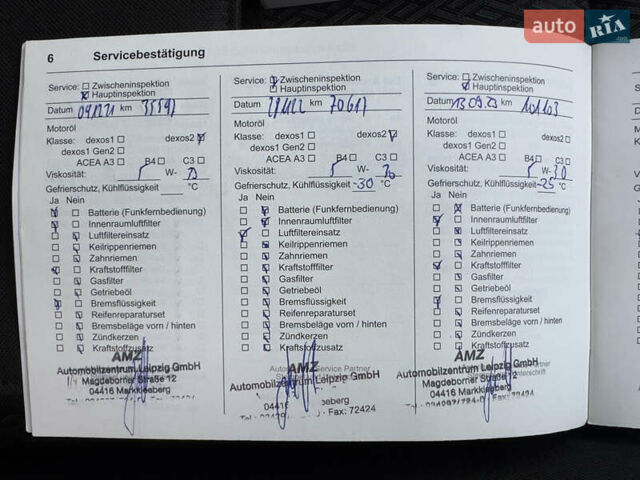 auto RIA .com
6 Servicebestätigung
Service: Zwischeninspektion
Hauptinspektion
Datum 09.12.21 km 35597
Motoröl
Klasse: dexos1 dexos2
dexos1 Gen2
ACEA A3 B4 C3
Viskosität: 5 W-
Gefrierschutz, Kühlflüssigkeit °C
Ja Nein
Batterie (Funkfernbedienung)
Innenraumluftfilter
Luftfiltereinsatz
Keilrippenriemen
Zahnriemen
Kraftstofffilter
Gasfilter
Getriebeöl
Bremsflüssigkeit
Reifenreparaturset
Bremsbeläge vorn / hinten
Zündkerzen
Kraftstoffzusatz
AMZ
Automobilzentrum Leipzig GmbH
Magdeborner Straße 12
04416 Markkleeberg
Service: Zwischeninspektion
Hauptinspektion
Datum km 70617
Motoröl
Klasse: dexos1 dexos2
dexos1 Gen2
ACEA A3 B4 C3
Viskosität: 5 W- 30
Gefrierschutz, Kühlflüssigkeit -30 °C
Ja Nein
Batterie (Funkfernbedienung)
Innenraumluftfilter
Luftfiltereinsatz
Keilrippenriemen
Zahnriemen
Kraftstofffilter
Gasfilter
Getriebeöl
Bremsflüssigkeit
Reifenreparaturset
Bremsbeläge vorn / hinten
Zündkerzen
Kraftstoffzusatz
AMZ
Service Partner
Automobilzentrum Leipzig GmbH
04416
Fax: 72424
Service: Zwischeninspektion
Hauptinspektion
Datum 13.09.23 km 101103
Motoröl
Klasse: dexos1 dexos2
dexos1 Gen2
ACEA A3 B4 C3
Viskosität: 5 W- 30
Gefrierschutz, Kühlflüssigkeit -25 °C
Ja Nein
Batterie (Funkfernbedienung)
Innenraumluftfilter
Luftfiltereinsatz
Keilrippenriemen
Zahnriemen
Kraftstofffilter
Gasfilter
Getriebeöl
Bremsflüssigkeit
Reifenreparaturset
Bremsbeläge vorn / hinten
Zündkerzen
Kraftstoffzusatz
AMZ
Automobilzentrum Leipzig GmbH
Magdeborner Straße 12
04416 Markkleeberg
Fax: 72424